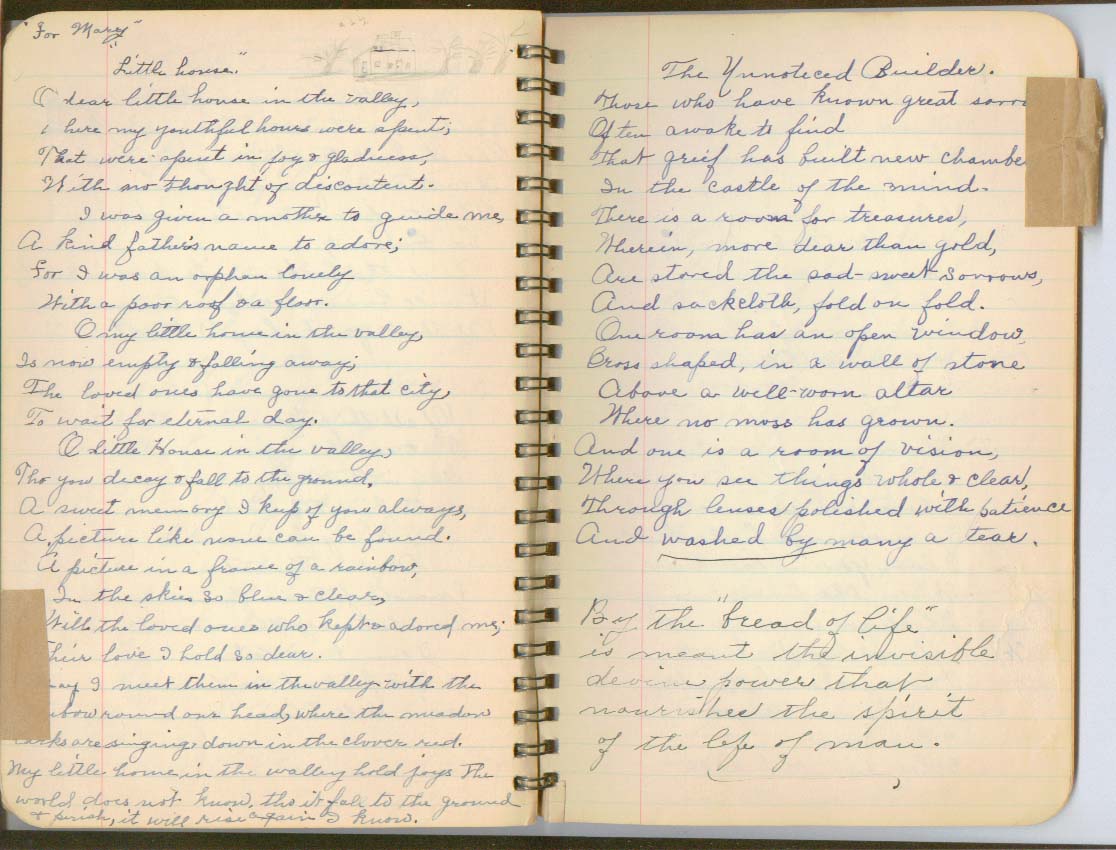 "For Mary"
"Little house."
O dear little house in the valley,
where my youthful hours were spent;
That were spent in joy & gladness,
With no thought of discontent.
I was given a mother to guide me,
A kind father's name to adore;
For I was an orphan lonely
With a poor roof & a floor.
O my little home in the valley,
Is now empty & falling away;
The loved ones have gone to that city,
To wait for eternal day.
O little House in the valley,
Tho you decay & fall to the ground,
A sweet memory I keep of you always,
A picture like none can be found.
A picture in a frame of a rainbow,
In the skies so blue & clear,
With the loved ones who kept & adored me;
Their love I hold so dear.
I meet them in the valley with the
nbow round our head, where the meadow
larks are singing down in the clover red.
My little home in the valley hold joys the
world does not know, tho it fall to the ground
& perish, it will rise again I know.
The Unnoticed Builder.
Those who have known great sorro
Often awake to find
That grief has built new chambe
In the castle of the mind.
There is a room for treasures,
Wherein, more dear than gold,
Are stored the sad-sweet sorrows,
And sackcloth, fold on fold.
One room has an open window,
Cross shaped, in a wall of stone
Above a well-worn altar
Where no moss has grown.
And one is a room of vision,
Where you see things whole & clear,
Through lenses polished with patience
And washed by many a tear.
By the "bread of life"
is meant the invisible
devine power that
nourishes the spirit
of the life of man.